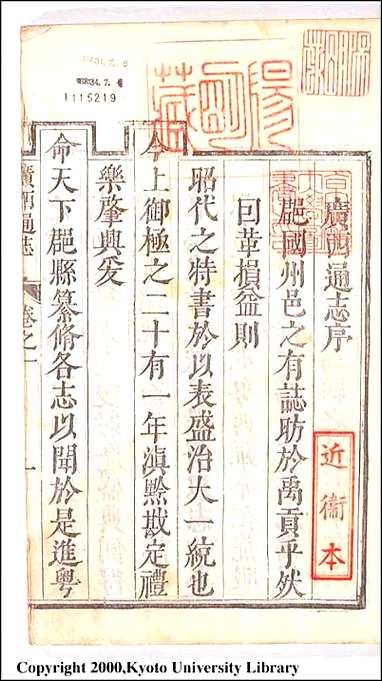 廣西通志序
郡國州邑之有誌昉於禹貢乎然
囙革損益則
昭代之特書於以表盛治大一統也
今上御極之二十有一年滇黔戡定禮
樂肇興爰
命天下郡縣纂脩各志以聞於是進粵
廣西通志
卷之一
一
近衞本
1115219
Copyright 2000,Kyoto University Library